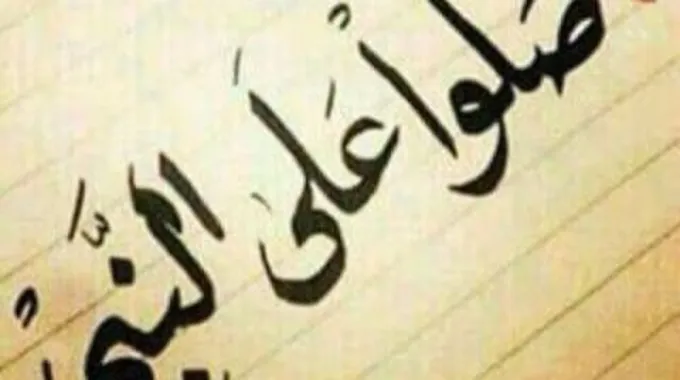 صَلوا عَلىَ النَّبيّ